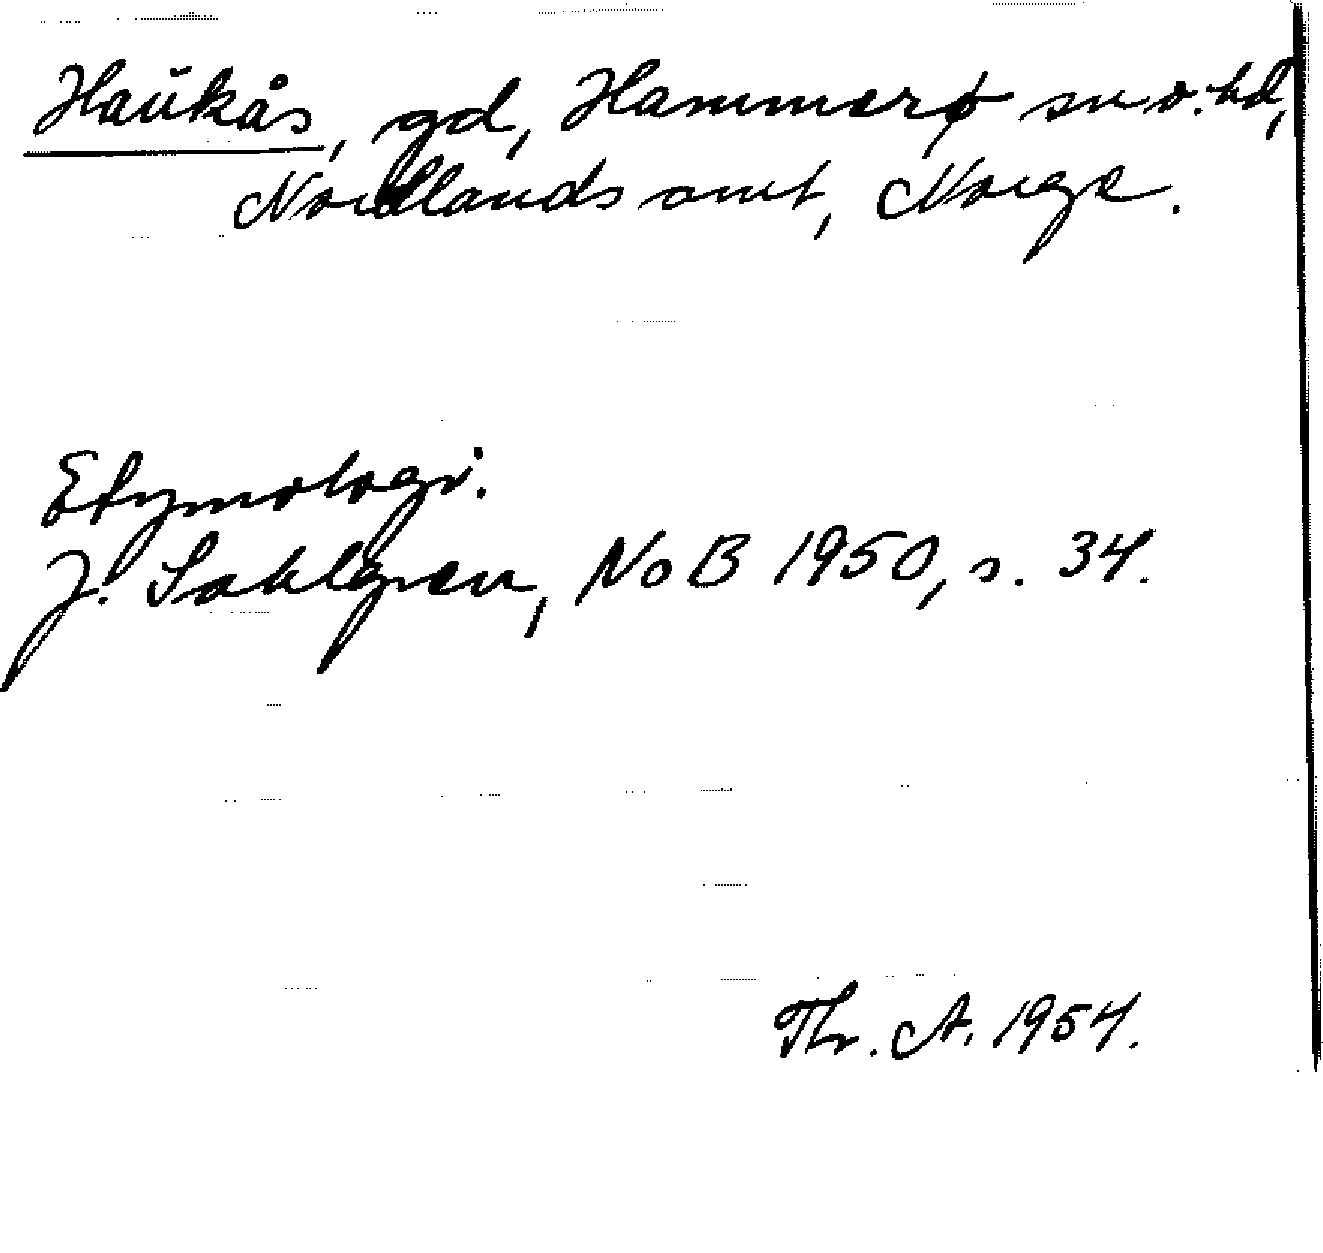 Haukås, gd, Hammerø sn o. hd,
Nordlands amt, Norge.
Etymologi:
J. Sahlgren, NoB 1950, s. 34.
Thr. A. 1954.